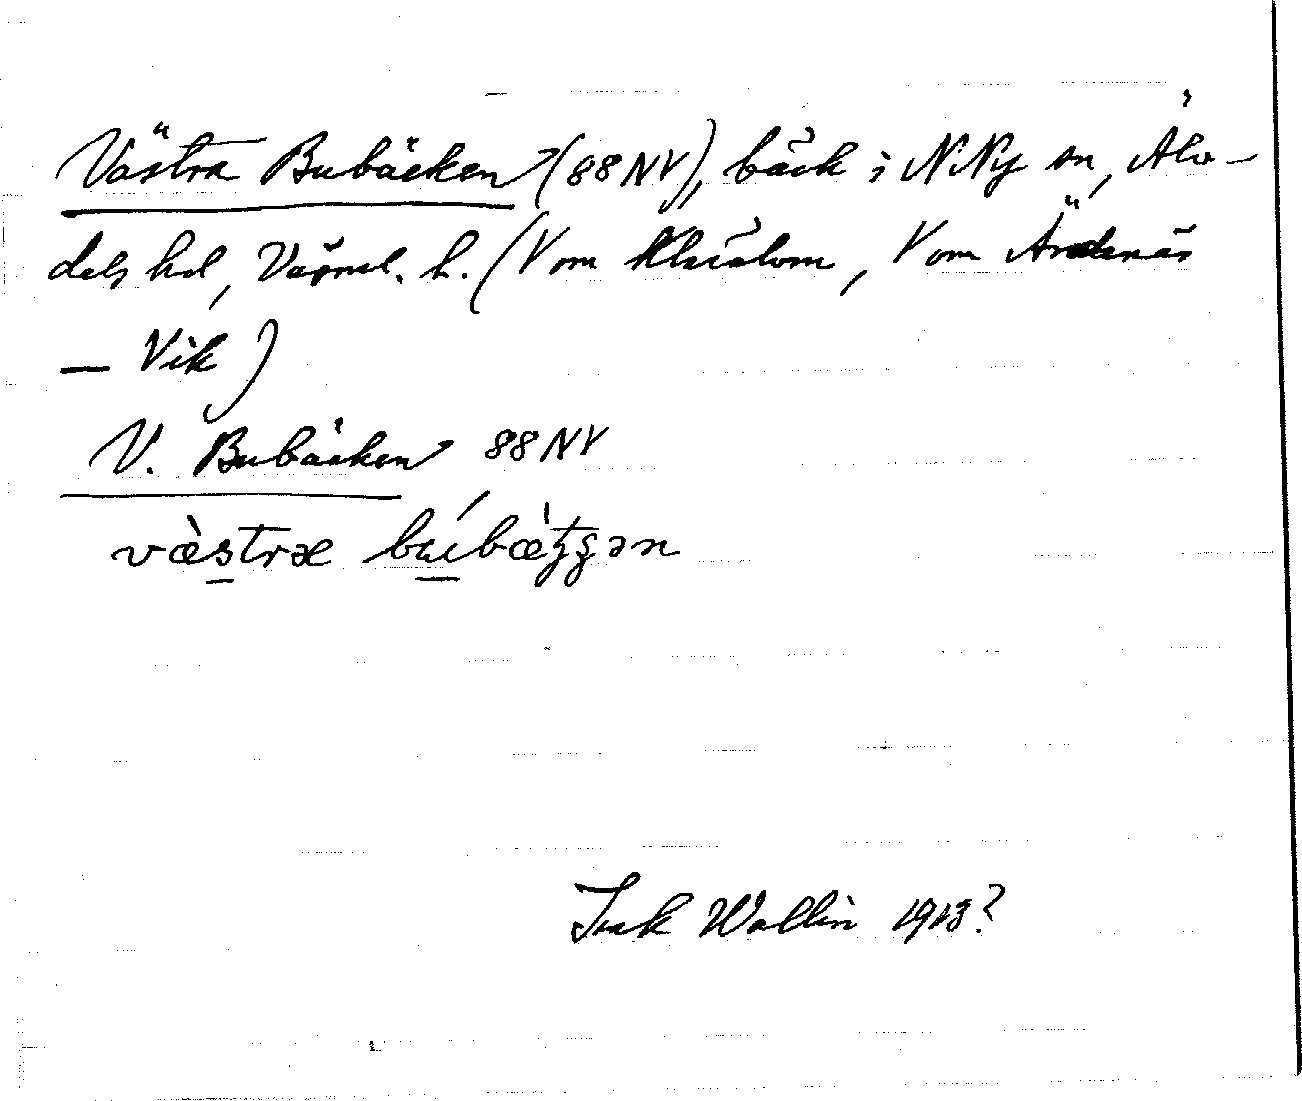 Västra Bubäcken (88 NV), bäck i N Ny sn, Älv-
dals hd, Värml. l. (V om Klarälven, V om Ärnäs
— Vik)
V. Bubäcken 88 NV
væ̀stræ búbæ̀ʒʒən
Wallin 1913?